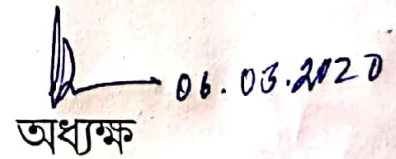 06.03.2020
অধ্যক্ষ